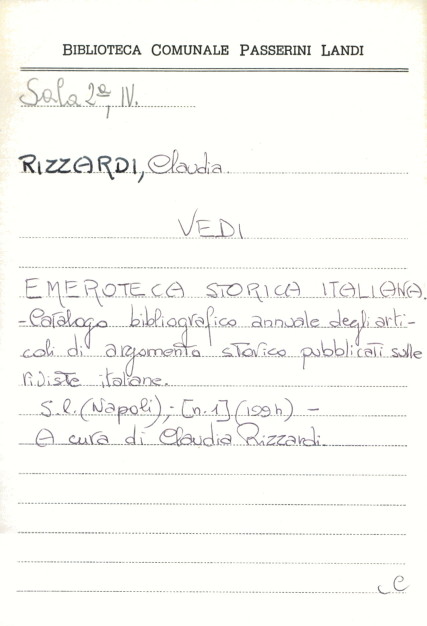 BIBLIOTECA COMUNALE PASSERINI LANDI
Sala 2ª, IV.
RIZZARDI, Claudia.
VEDI
EMEROTECA STORICA ITALIANA.
-Catalogo bibliografico annuale degli arti-
coli di argomento storico pubblicati sulle
riviste italiane.
S.l. (Napoli), - [n. 1] (1994) -
A cura di Claudia Rizzardi.